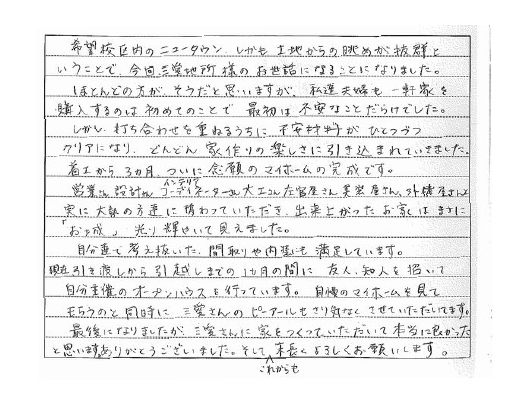 希望校区内のニュータウン、しかも土地からの眺めが抜群と
いうことで、今回三愛地所様のお世話になることになりました。
ほとんどの方が、そうだと思いますが、私達夫婦も一軒家を
購入するのは初めてのことで最初は不安なことだらけでした。
しかし、打ち合わせを重ねるうちに、不安材料がひとつづつ
クリアになり、どんどん家作りの楽しさに引き込まれていきました。
着工から3ヵ月、ついに念願のマイホームの完成です。
営業さん、設計さん、インテリアコーディネーターさん、大工さん、左官屋さん、美装屋さん、外構屋さんと
実に大勢の方達に携わっていただき、出来上がったお家はまさに
「お城」光り輝やいて見えました。
自分達で考え抜いた、間取りや内装も満足しています。
現在引き渡しから引越しまでの1カ月の間に友人、知人を招いて
自分主催のオープンハウスを行っています。自慢のマイホームを見て
もらうのと同時に三愛さんのピーアールもさり気なくさせていただいてます。
最後になりましたが、三愛さんに家をつくっていただいて本当に良かった
と思います。ありがとうございました。そして、これからも末長くよろしくお願いします。